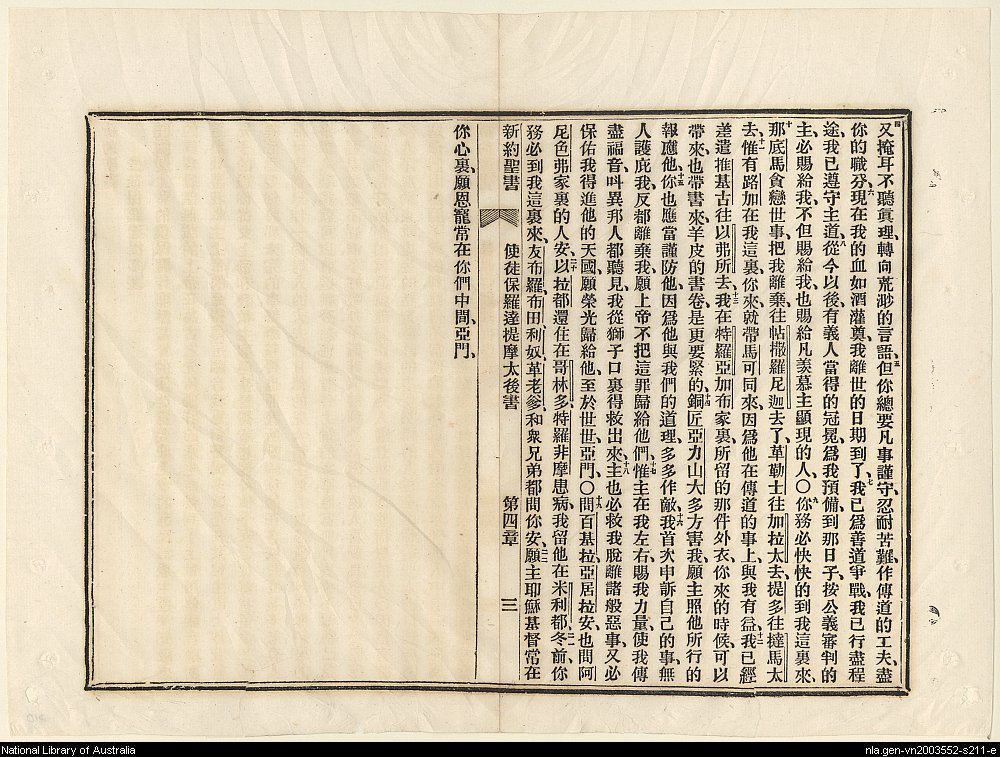 又掩耳不聽眞理、轉向荒渺的言語、五但你總要凡事謹守、忍耐苦難、作傳道的工夫、盡
你的職分、六現在我的血如酒灌奠、我離世的日期到了、七我已爲善道爭戰、我已行盡程
途、我已遵守主道、八從今以後、有義人當得的冠冕、爲我預備、到那日子、按公義審判的
主、必賜給我、不但賜給我、也賜給凡羨慕主顯現的人、〇九你務必快快的到我這裏來、
十那底馬貪戀世事、把我離棄、往帖撒羅尼迦去了、革勒士往加拉太去、提多往撻馬太
去、十一惟有路加在我這裏、你來就帶馬可同來、因爲他在傳道的事上、與我有益、十二我已經
差遣推基古往以弗所去、十三我在特羅亞加布家裏、所留的那件外衣、你來的時候、可以
帶來、也帶書來、羊皮的書卷、是更要緊的、十四銅匠亞力山大多方害我、願主照他所行的
報應他、十五你也應當謹防他、因爲他與我們的道理、多多作敵、十六我首次申訴自己的事、無
人護庇我、反都離棄我、願上帝不把這罪歸給他們、十七惟主在我左右、賜我力量、使我傳
盡福音、呌異邦人都聽見、我從獅子口裏得救出來、十八主也必救我脫離諸般惡事、又必
保佑我得進他的天國、願榮光歸給他、至於世世、亞門、〇十九問百基拉亞居拉安、也問阿
尼色弗家裏的人安、二十以拉都還住在哥林多、特羅非摩患病、我留他在米利都、二一冬前、你
務必到我這裏來、友布羅、布田、利奴、革老爹、和衆兄弟、都問你安、二二願主耶穌基督常在
新約聖書 使徒保羅達提摩太後書 第四章 三
你心裏、願恩寵常在你們中間、亞門、
四
National Library of Australia
nla.gen-vn2003552-s211-e